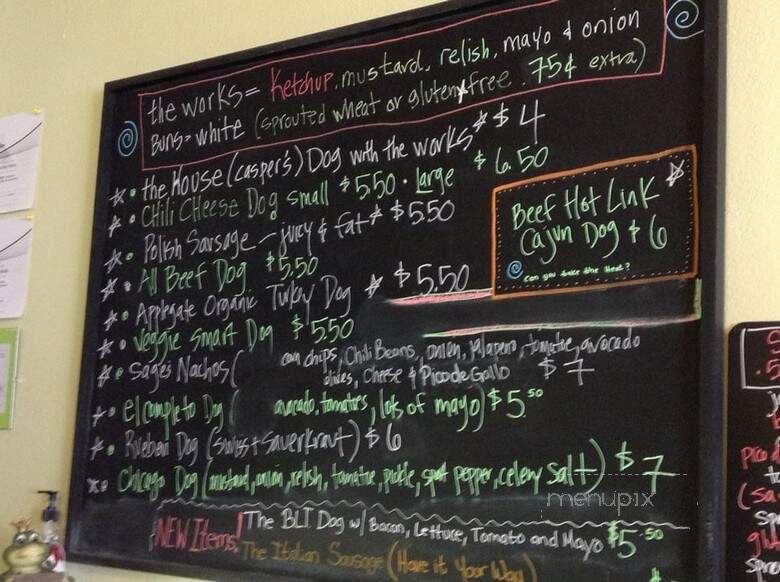 the works= Ketchup, mustard, relish, mayo & onion
Buns> white (sprouted wheat or gluten free .75¢ extra)
the House (casper's) Dog with the works $4
Chili Cheese Dog small $5.50 · Large $6.50
Polish Sausage - juicy & fat $5.50
All Beef Dog $5.50
Applegate Organic Turkey Dog $5.50
Veggie Smart Dog $5.50
Sage's Nachos ( chips, Chili Beans, onion, jalapeno, tomatoe, avocado
olives, Cheese & Pico de Gallo $7
el completo Dog ( avocado, tomatoes, lots of mayo) $5.50
Rueben Dog (swiss + Sauerkraut) $6
Chicago Dog (mustard, onion, relish, tomatoe, pickle, sport pepper, celery Salt) $7
NEW Items! The BLT Dog w/ Bacon, Lettuce, Tomato and Mayo $5.50
The Italian Sausage (Have it Your Way)
Beef Hot Link
Cajun Dog $6
Can you take the Heat?
menupix